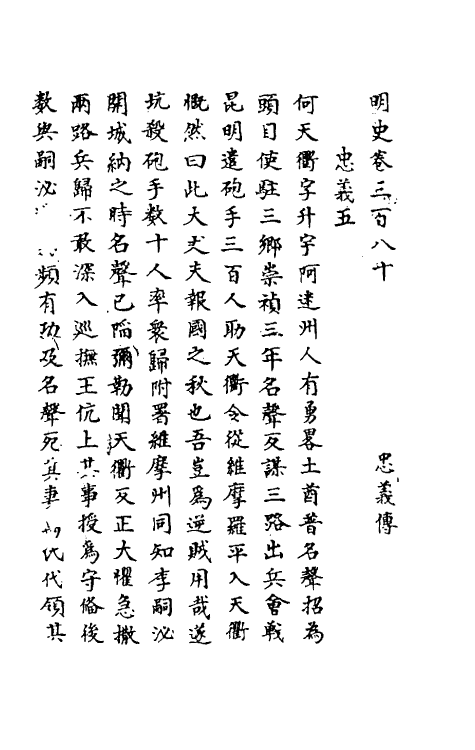 明史卷三百八十 忠義傳
忠義五
何天衢字升宇阿迷州人有勇畧土酋普名聲招為
頭目使駐三鄉崇禎三年名聲反謀三路出兵會戰
昆明遣砲手三百人助天衢令從維摩羅平入天衢
慨然曰此大丈夫報國之秋也吾豈為逆賊用哉遂
坑殺砲手數十人率衆歸附署維摩州同知李嗣泌
開城納之時名聲已陷彌勒聞天衢反正大懼急撤
兩路兵歸不敢深入巡撫王伉上其事授為守備後
數與嗣泌 頻有功及名聲死其妻 氏代領其